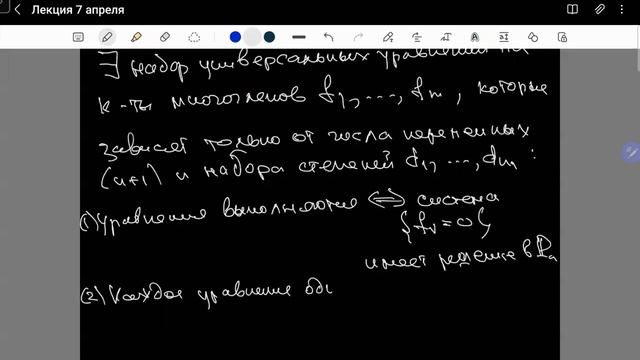 Лекция 7 апреля
∃ набор универсальных уравнений на
к-ты многочленов f₁, ..., fₘ, которые
зависят только от числа переменных
(n+1) и набора степеней d₁, ..., dₘ :
(1) Уравнения выполняются ⟺ система
{fᵥ = 0}
имеет решение в ℙₙ
(2) Каждое уравнение одн